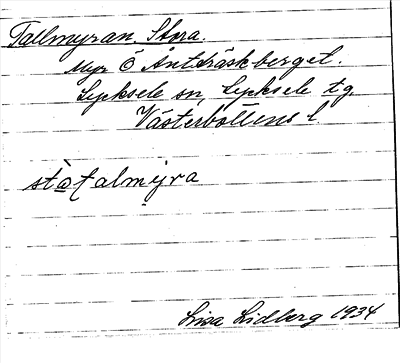 Tallmyran, Stora.
Myr Ö Åntträskberget.
Lycksele sn, Lycksele tg.
Västerbottens l.
stòtalmyra
Lisa Lidberg 1934